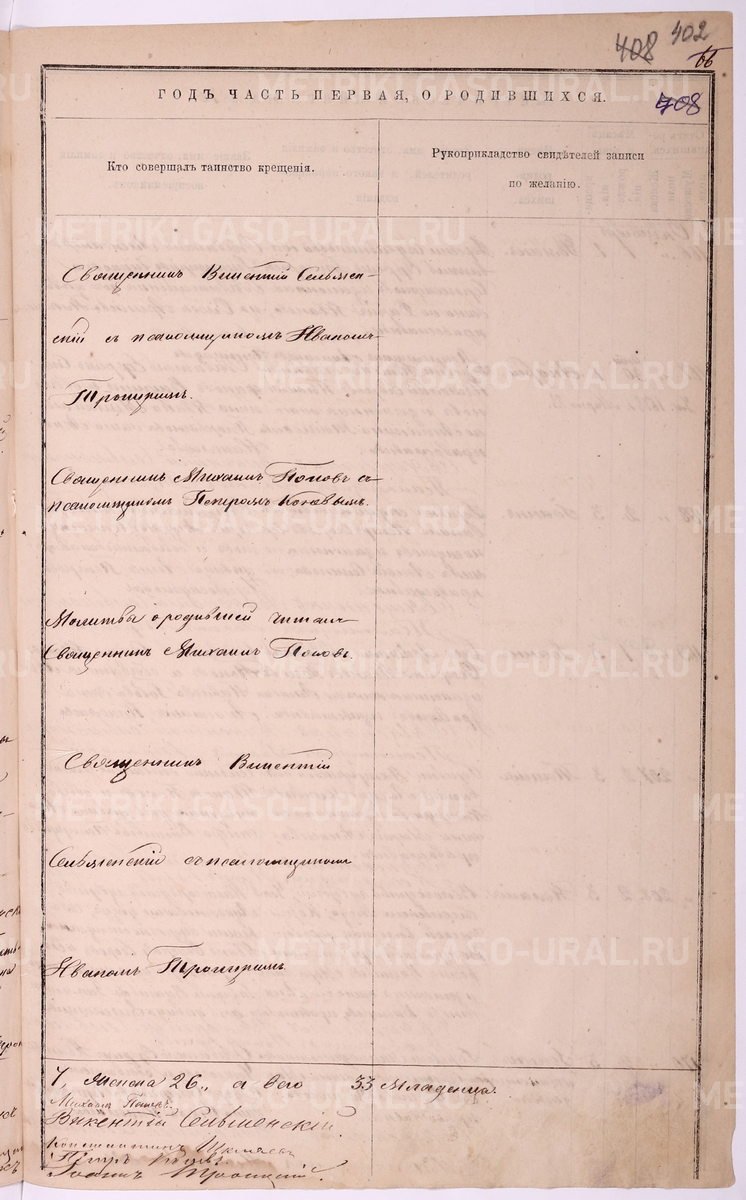 408 402
66
708
ГОДЪ ЧАСТЬ ПЕРВАЯ, О РОДИВШИХСЯ.
Кто совершалъ таинство крещенія.
Рукоприкладство свидѣтелей записи
по желанію.
Священникъ Викентій Сельмен-
скій съ псаломщикомъ Иваномъ
Троицкимъ.
Священникъ Михаилъ Поповъ съ
псаломщикомъ Петромъ
Молитвы о родившей читалъ
Священникъ Михаилъ Поповъ.
Священникъ Викентій
Сельменскій съ псаломщикомъ
Иваномъ Троицкимъ.
7, женска 26, а всего 33 младенца.
Михаилъ Поповъ.
Викентій Сельменскій.
Константинъ
Петръ
Іоаннъ Троицкій
METRIKI.GASO-URAL.RU